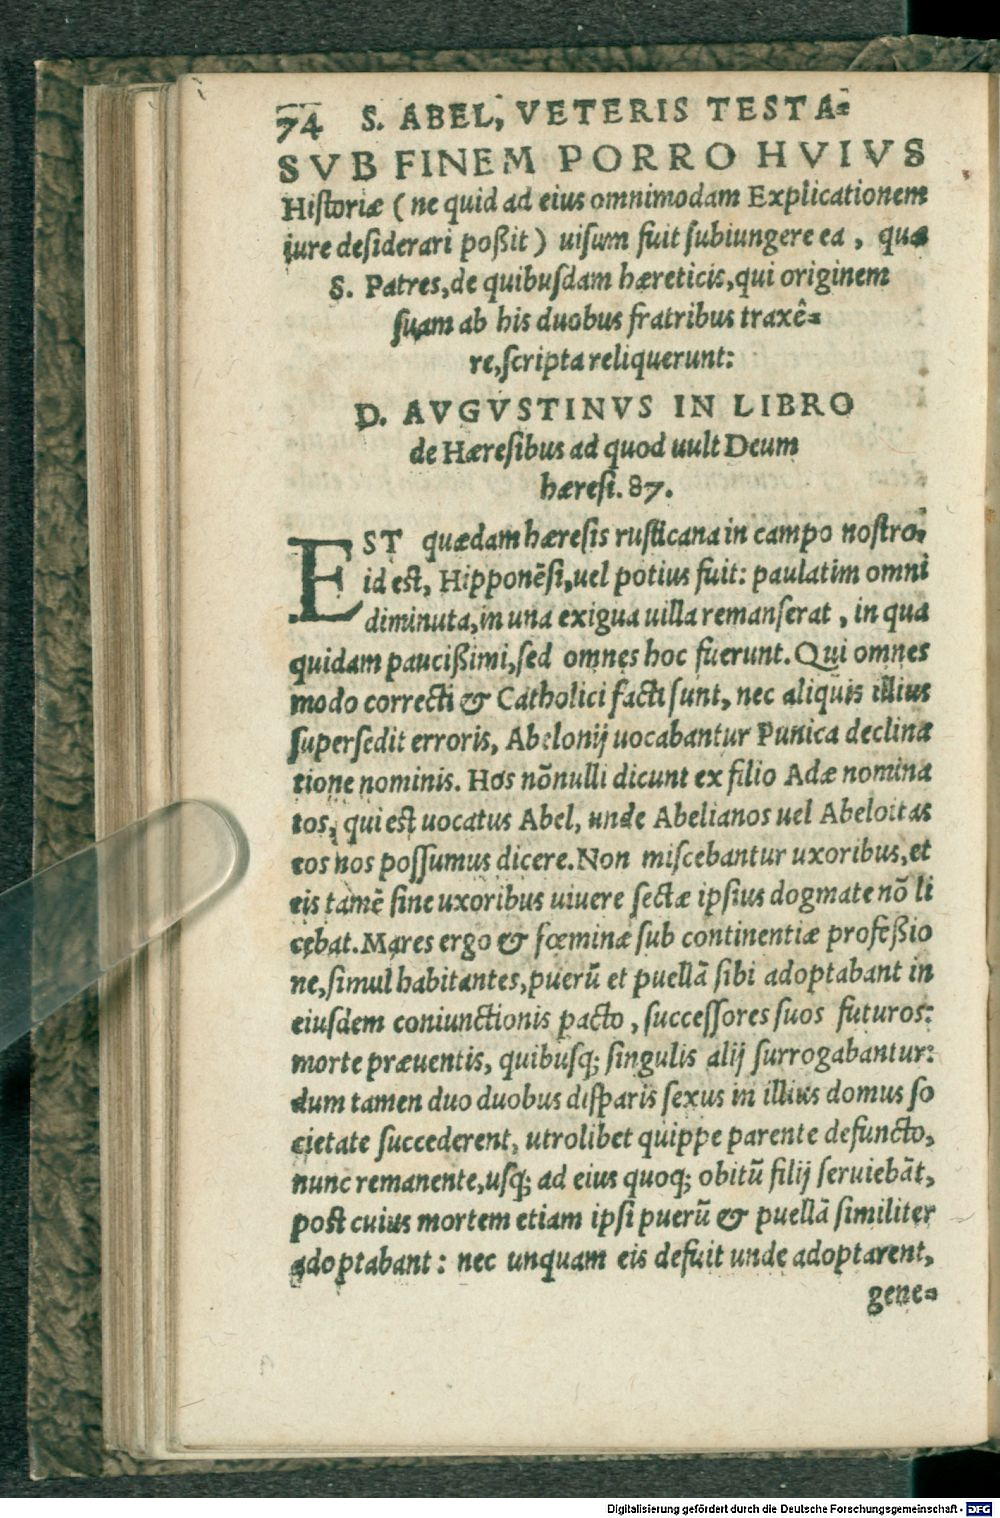 74 S. ABEL, VETERIS TESTA-
SVB FINEM PORRO HVIVS
Historiæ (ne quid ad eius omnimodam Explicationem
iure desiderari poßit) uisum fuit subiungere ea, quæ
S. Patres, de quibusdam hæreticis, qui originem
suam ab his duobus fratribus traxê-
re, scripta reliquerunt:
D. AVGVSTINVS IN LIBRO
de Hæresibus ad quod uult Deum
hæresi. 87.
EST quædam hæresis rusticana in campo nostro,
id est, Hipponēsi, uel potius fuit: paulatim omni
diminuta, in una exigua uilla remanserat, in qua
quidam paucißimi, sed omnes hoc fuerunt. Qui omnes
modo correcti & Catholici facti sunt, nec aliquis illius
supersedit erroris, Abelonij uocabantur Punica declina
tione nominis. Hos nōnulli dicunt ex filio Adæ nomina
tos, qui est uocatus Abel, unde Abelianos uel Abeloitas
eos nos possumus dicere. Non miscebantur uxoribus, et
eis tamē sine uxoribus uiuere sectæ ipsius dogmate nō li
cebat. Mares ergo & fœminæ sub continentiæ profeßio
ne, simul habitantes, puerū et puellā sibi adoptabant in
eiusdem coniunctionis pacto, successores suos futuros:
morte præuentis, quibusq; singulis alij surrogabantur:
dum tamen duo duobus disparis sexus in illius domus so
cietate succederent, utrolibet quippe parente defuncto,
nunc remanente, usq; ad eius quoq; obitū filij seruiebāt,
post cuius mortem etiam ipsi puerū & puellā similiter
adoptabant: nec unquam eis defuit unde adoptarent,
gene-
Digitalisierung gefördert durch die Deutsche Forschungsgemeinschaft - DFG